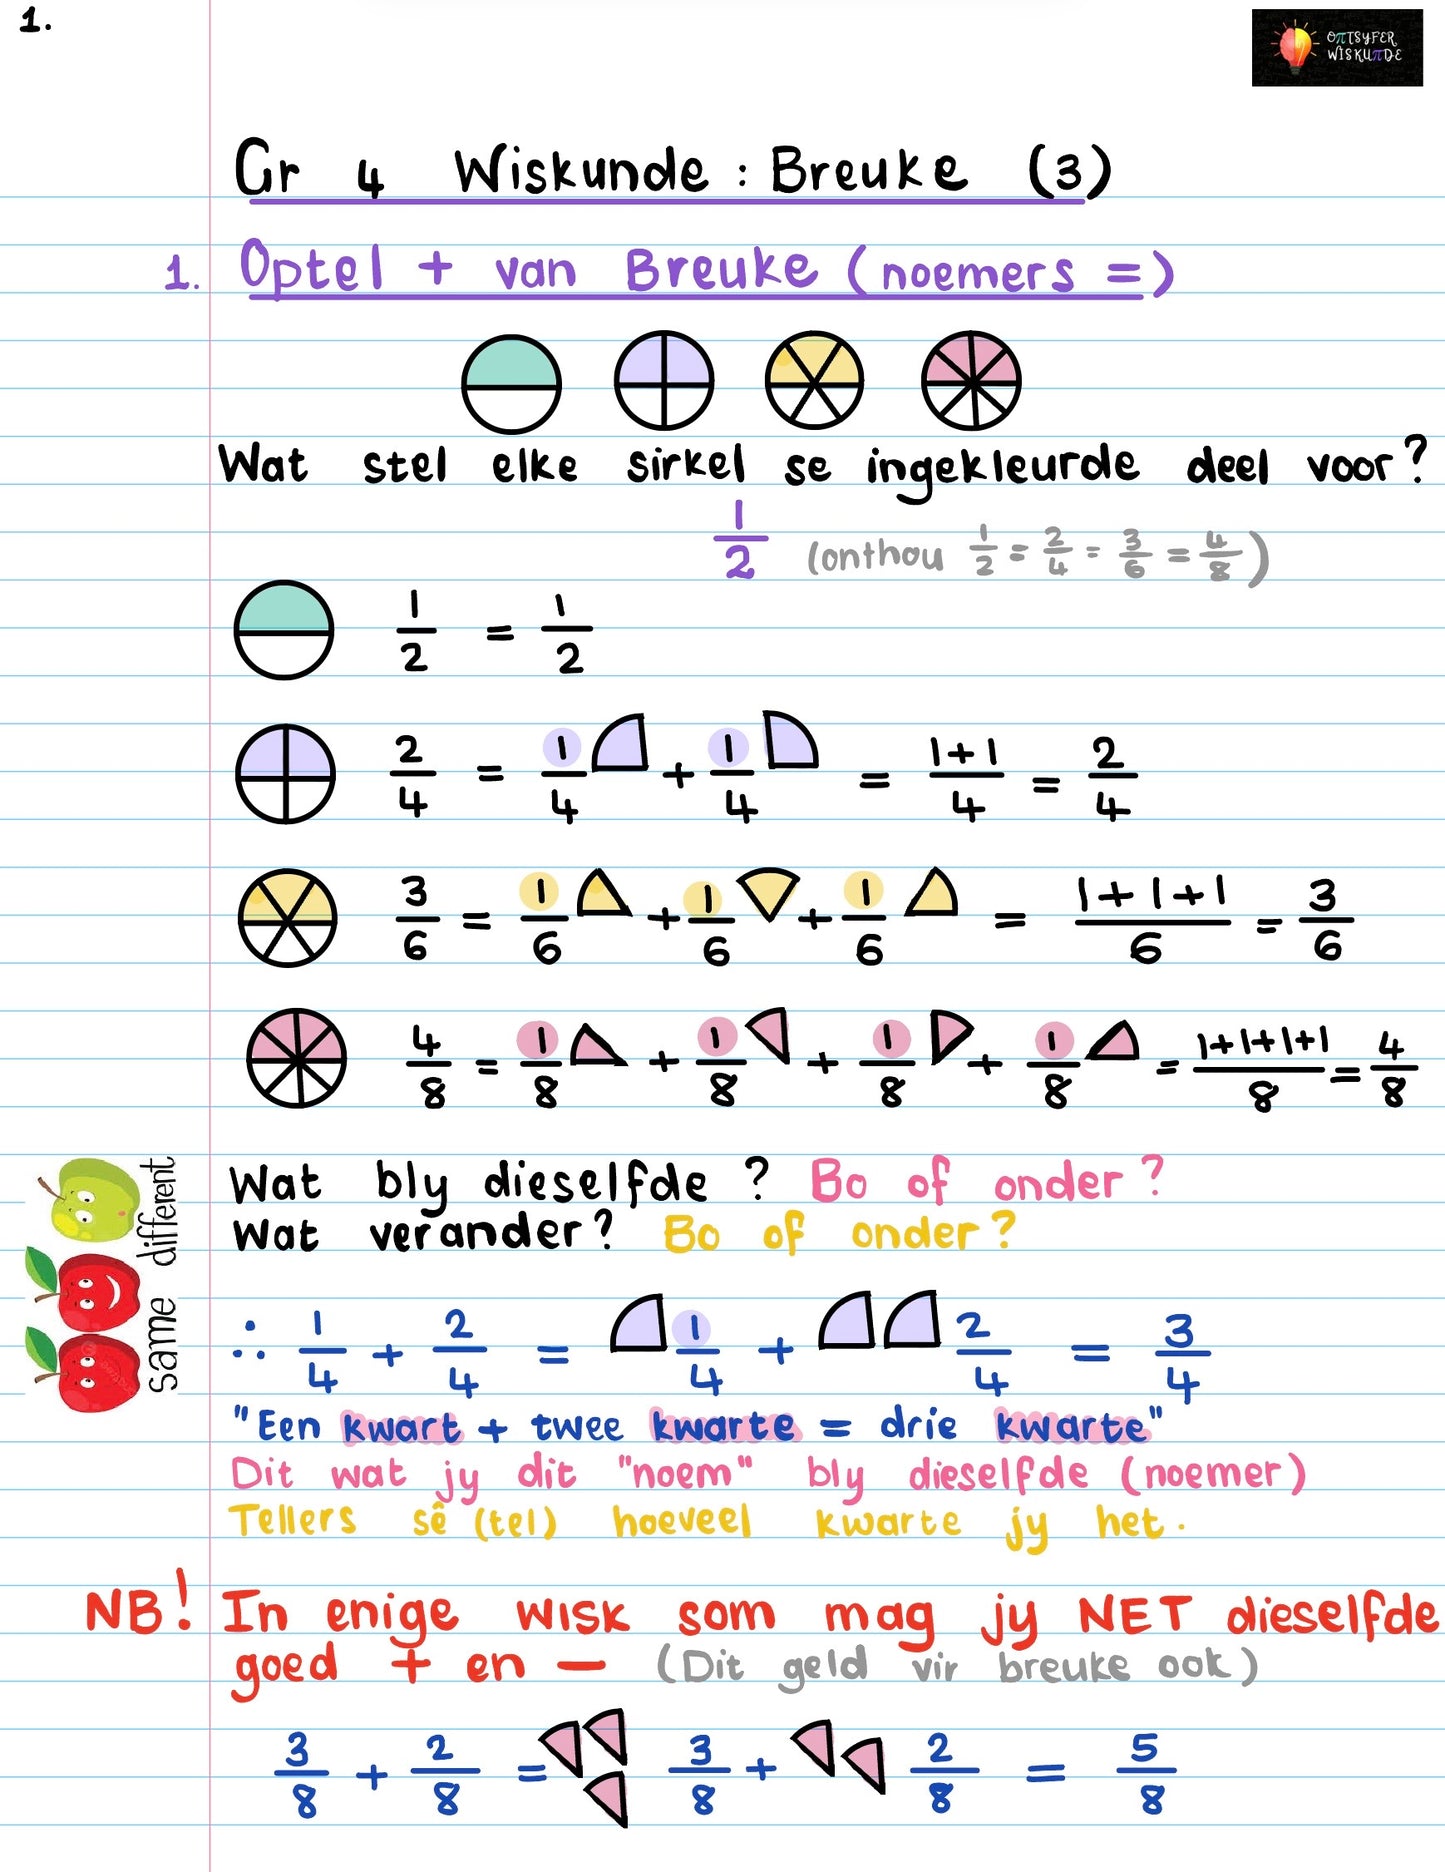 1.
OπTSYFER
WISKUπDE
Gr 4 Wiskunde : Breuke (3)
1. Optel + van Breuke (noemers =)
Wat stel elke sirkel se ingekleurde deel voor?
1/2 (onthou 1/2 = 2/4 = 3/6 = 4/8)
1/2 = 1/2
2/4 = 1/4 + 1/4 = 1+1/4 = 2/4
3/6 = 1/6 + 1/6 + 1/6 = 1+1+1/6 = 3/6
4/8 = 1/8 + 1/8 + 1/8 + 1/8 = 1+1+1+1/8 = 4/8
Wat bly dieselfde ? Bo of onder?
Wat verander? Bo of onder?
same different
∴ 1/4 + 2/4 = 1/4 + 2/4 = 3/4
"Een kwart + twee kwarte = drie kwarte"
Dit wat jy dit "noem" bly dieselfde (noemer)
Tellers sê (tel) hoeveel kwarte jy het.
NB! In enige wisk som mag jy NET dieselfde
goed + en - (Dit geld vir breuke ook)
3/8 + 2/8 = 3/8 + 2/8 = 5/8